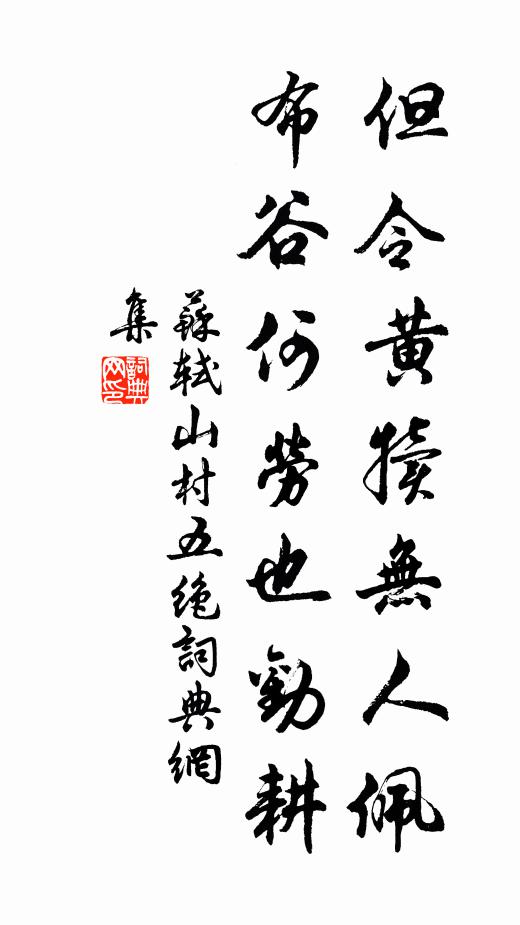 但令黃犢無人佩
布谷何勞也勸耕
蘇軾山村五絕詞典網
集
詞典
网印